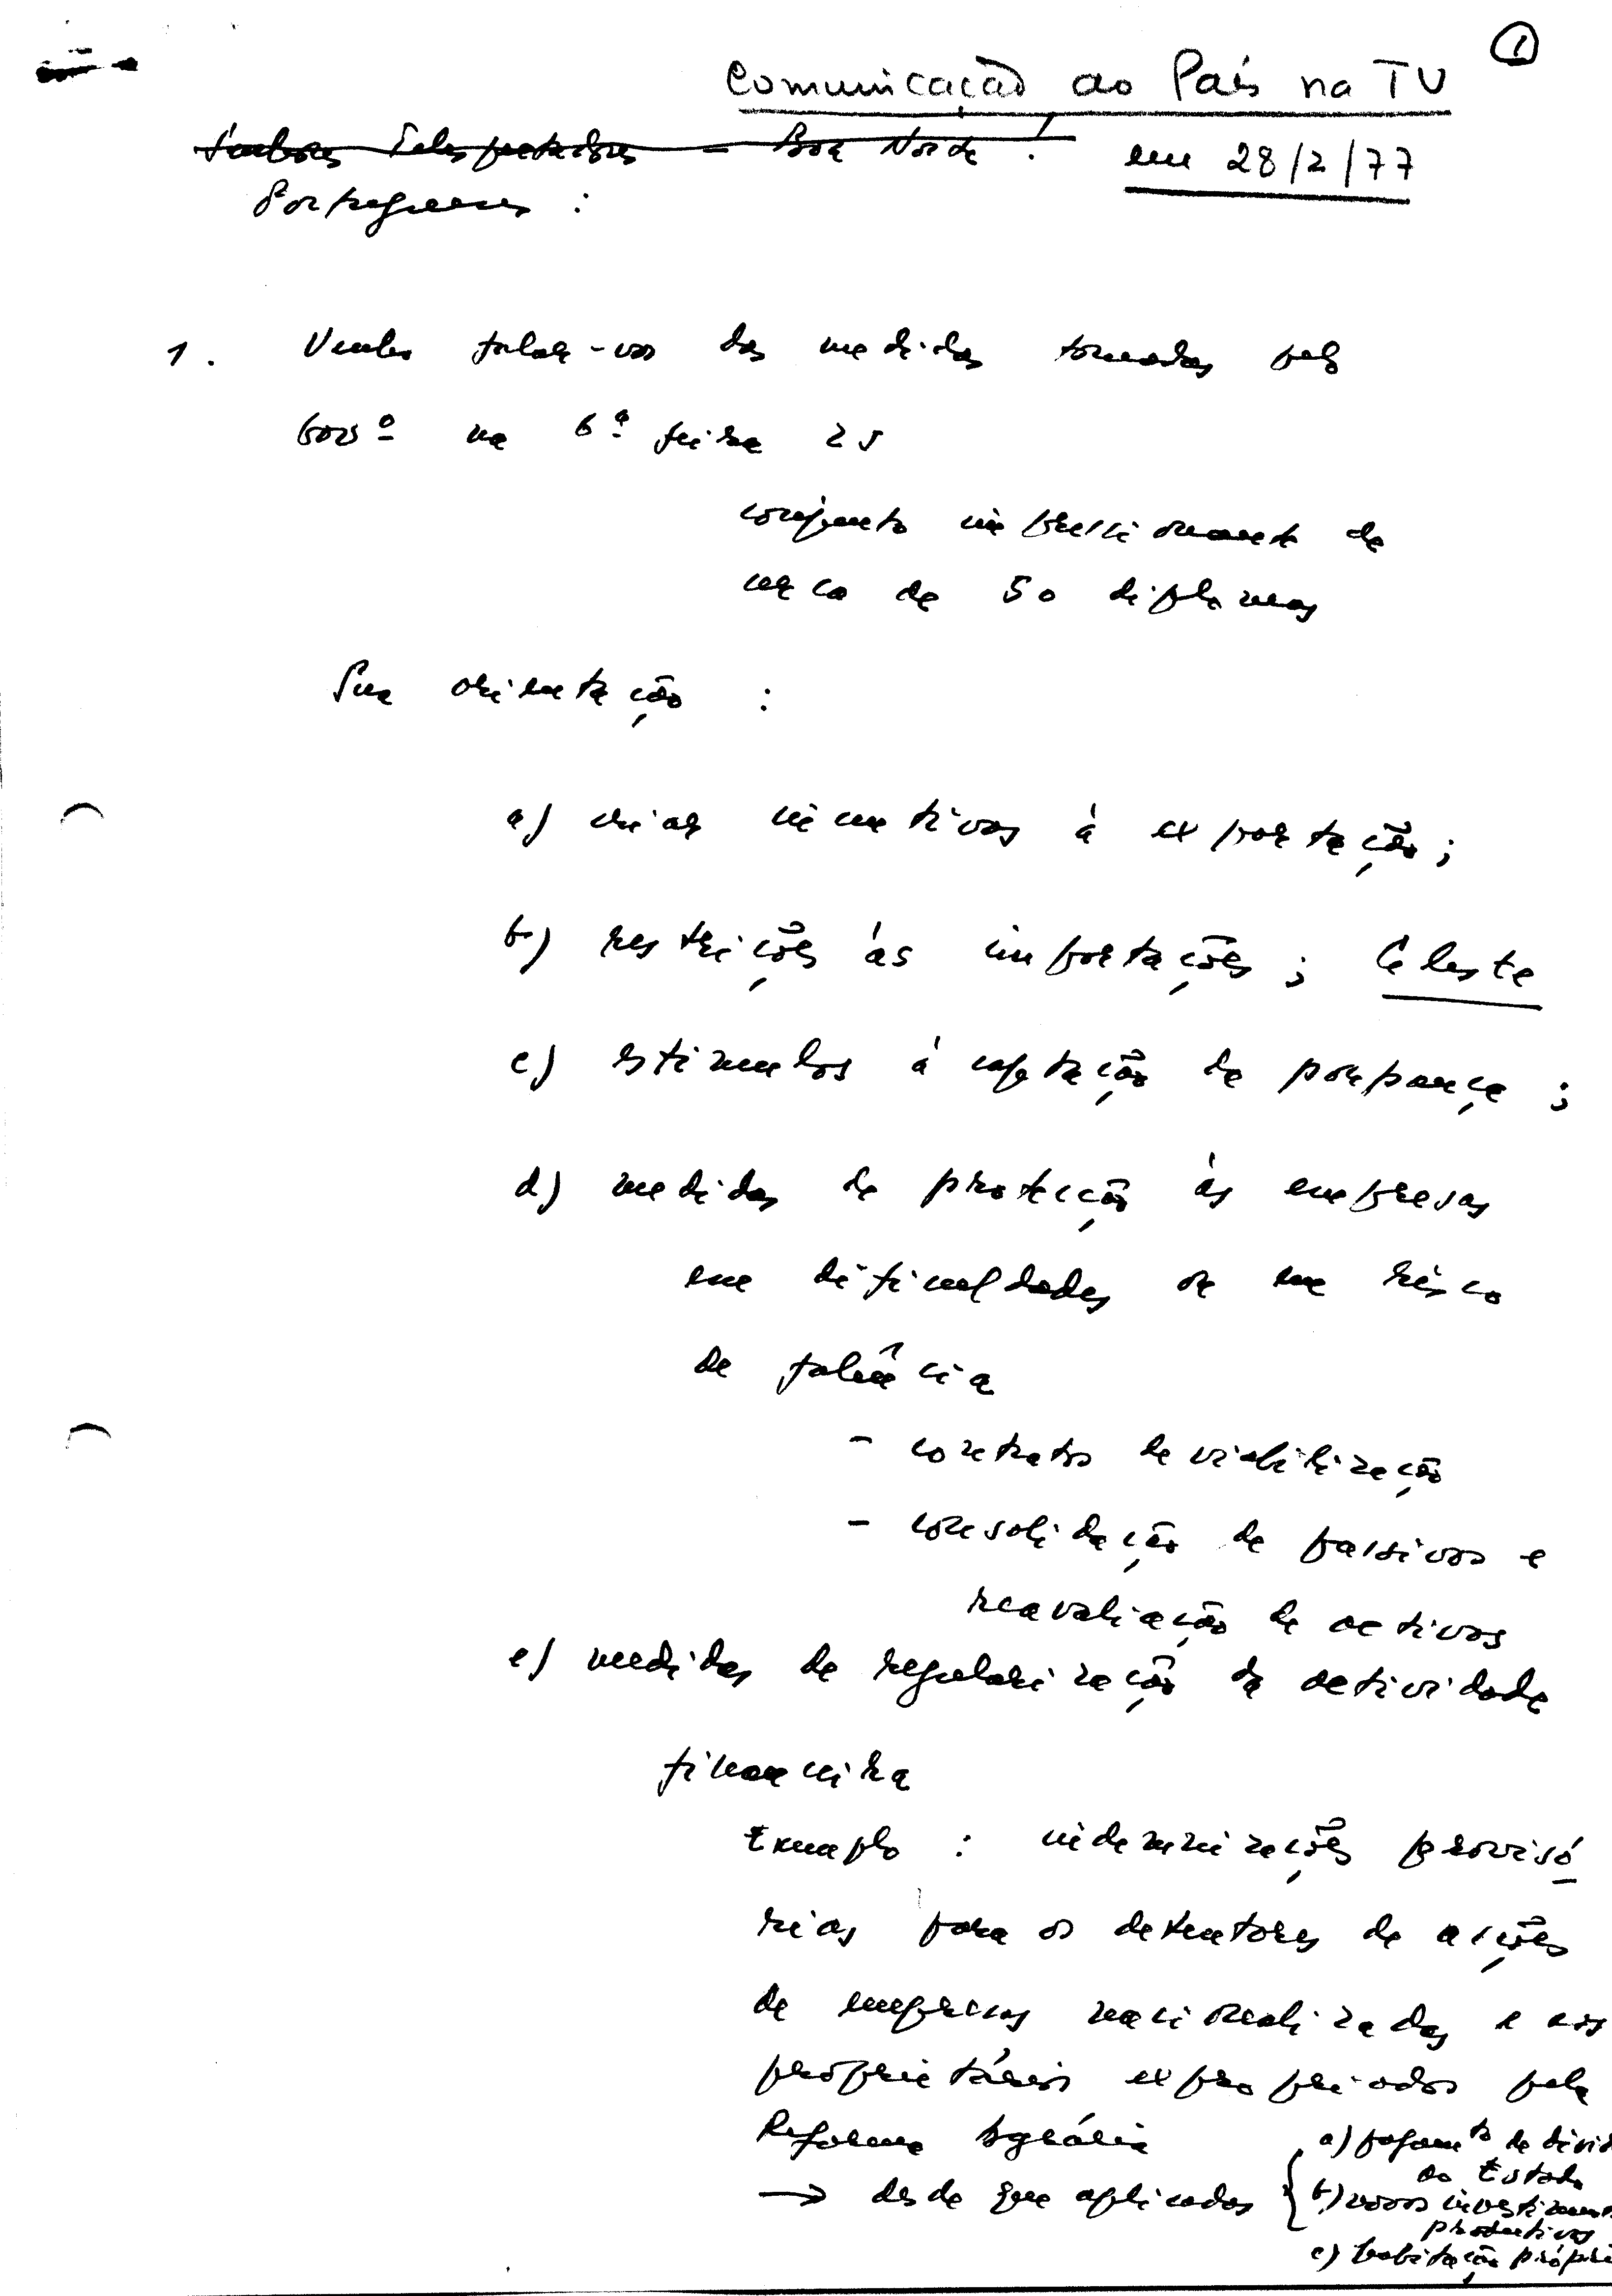 1
Comunicação ao País na TV
Senhores Telespectadores - Boa Noite! em 28/2/77
Portugueses :
1. Venho falar-vos das medidas tomadas pelo
Govº na 6ª feira 25
conjunto impressionante de
cerca de 50 diplomas
Sua orientação :
a) criar incentivos à exportação;
b) restrições às importações; Celeste
c) estímulos à captação de poupança;
d) medidas de protecção às empresas
em dificuldades ou em risco
de falência
- contratos de viabilização
- consolidação de passivos e
reavaliação de activos
e) medidas de regularização da actividade
financeira
Exemplo : indemnizações provisó
rias para os detentores de acções
de empresas nacionalizadas e aos
proprietários expropriados pela
Reforma Agrária
→ desde que aplicadas
a) pagamto de dívid
ao Estado
b) novos investimen
produtivos
c) habitação própri